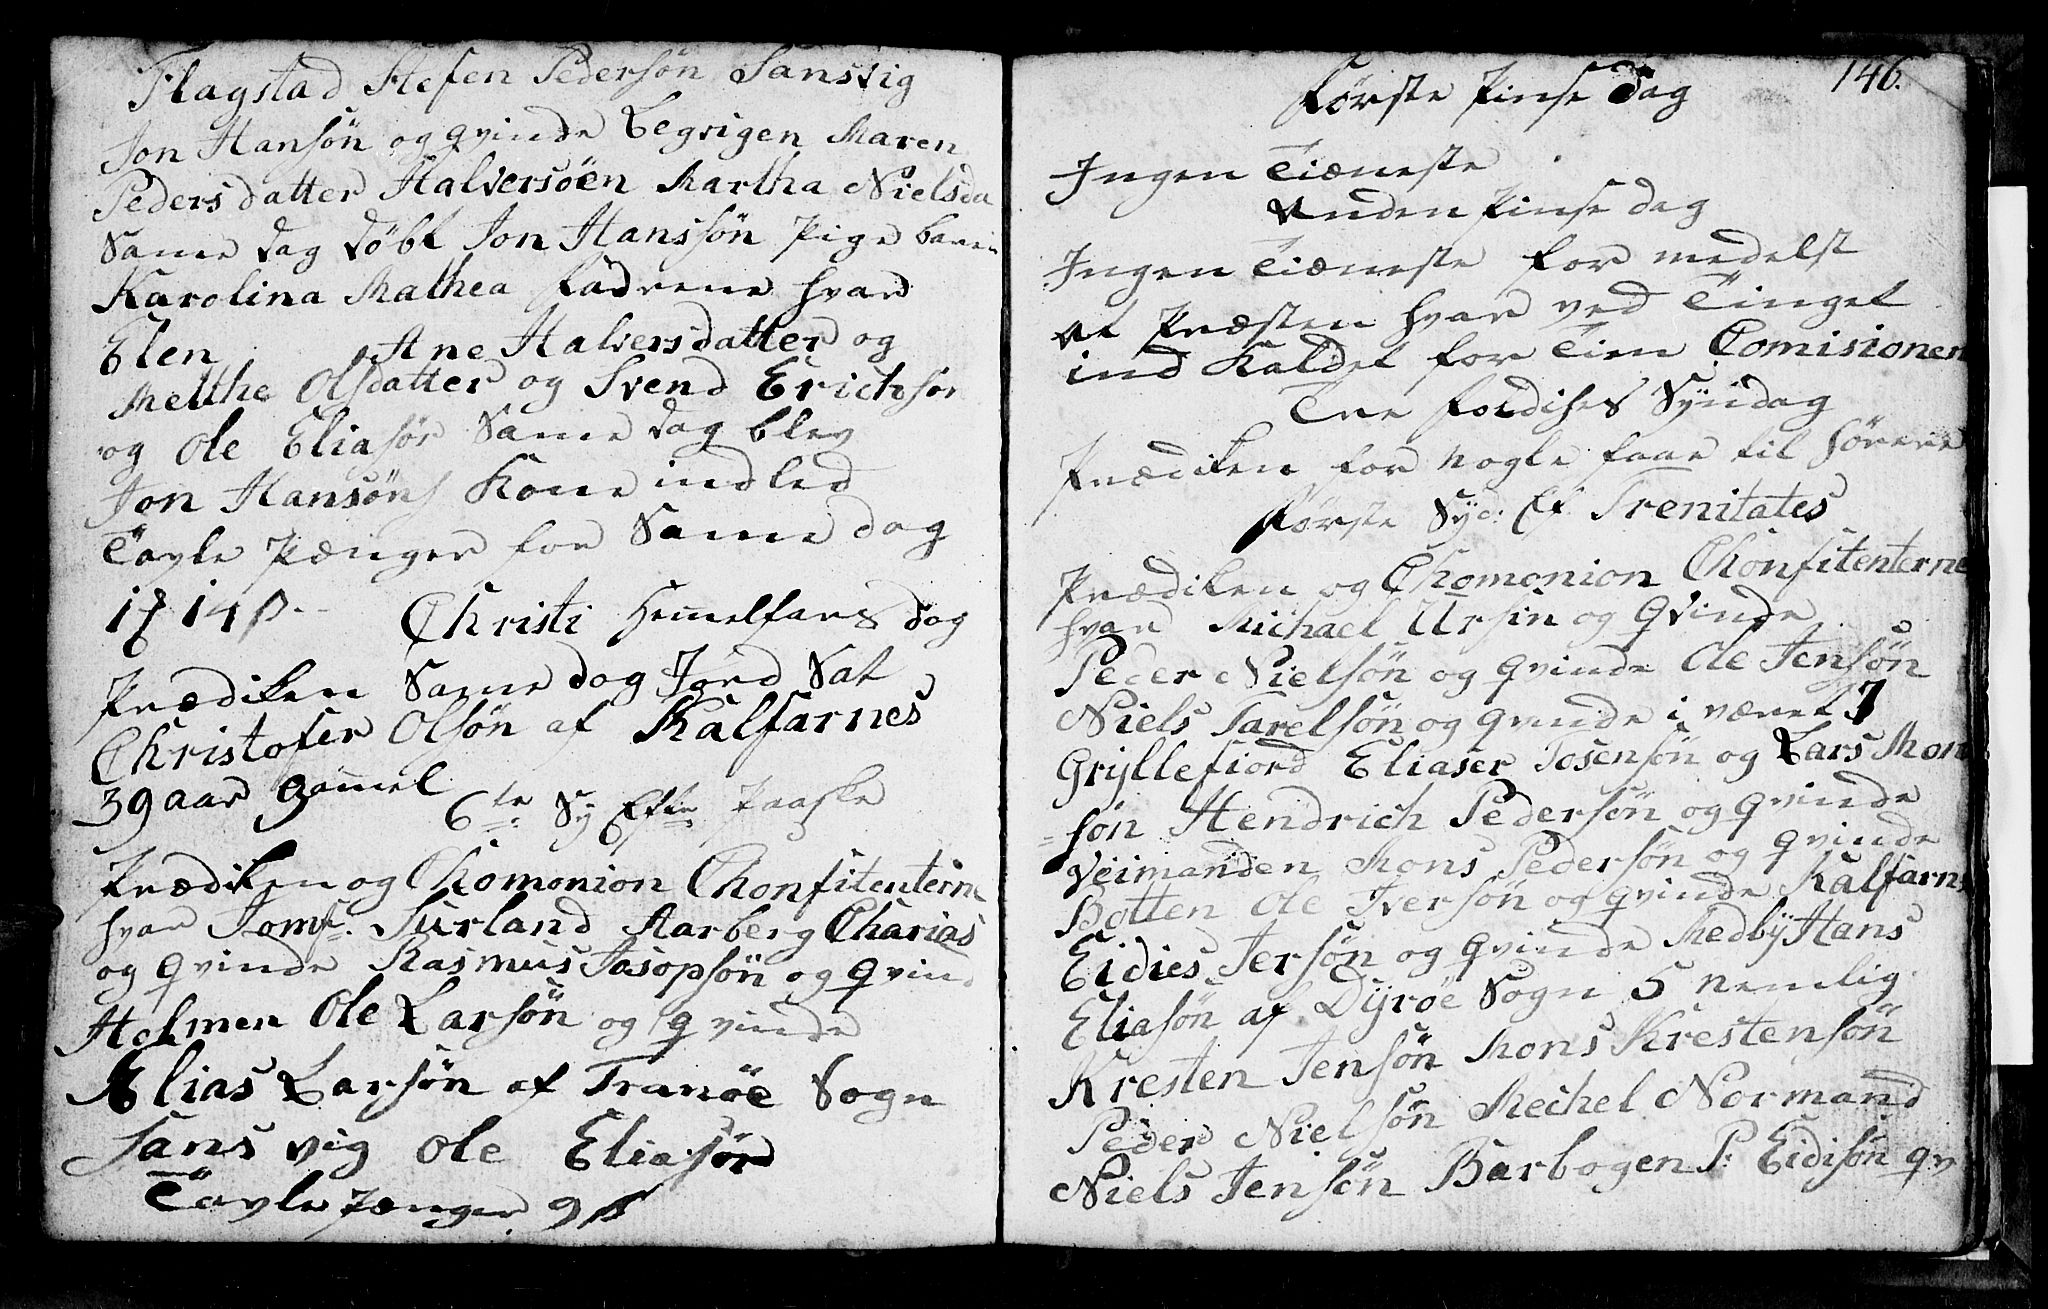 Flagstad Stefen Pedersøn Sansvig
Jon Hansøn og qvinde Legvigen Maren
Pedersdatter Halversøen Martha Nielsda
Same dag døbt Jon Hanssøn Pige barn
Karolina Mathea fadrene hvar
Elen Ane Halversdatter og
Metthe Olsdatter og Svend Erichsøn
og Ole Eliasøn Same dag blev
Jon Hansøns Kone indled
Tavle Pænger for Same dag
14 ß
Christi Hemelfars dag
Prædiken Same dag Jord Sat
Christofer Olsøn af Kalfarnes
39 aar gamel
6te Sy Efte Paaske
Prædiken og Chomonion Chonfitenterne
hvar Jomf. Surland Aarberg Charias
og qvinde Rasmus Jasopsøn og qvind
Holmen Ole Larsøn og qvinde
Elias Larsøn af Tranöe Sogn
Sans vig Ole Eliasøn
Tavle Pænger 9 ß
146.
Første Pinse Dag
Ingen Tiæneste
Anden Pinse dag
Ingen Tiæneste for medelst
at Præsten hvar ved Tinget
ind Kaldet for Comisionen
Tre foldihes Syndag
Prædiken for nogle faae til hørere
Første Syd: Ef Trenitates
Prædiken og Chomonion Chonfitenterne
hvar Michael Ursin og Qvinde
Peder Nielsøn og qvinde Ole Jensøn
Niels Tarelsøn og qvinde i været
Gryllefiord Eliaser Josensøn og Lars Mon
søn Hendrich Pedersøn og qvinde
Veimanden Mons Pedersøn og qvinde
Botten Ole Iversøn og qvinde Kalfarns
Eidies Jersøn og qvinde Medby Hans
Eliasøn af Dyrøe Sogn 5 nemlig
Kresten Jensøn Mons Krestensøn
Peder Nielsøn Mechel Normand
Niels Jensøn Barbogen P: Eidisøn qv